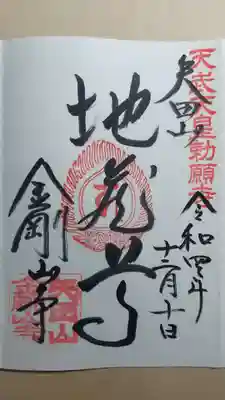 天武天皇勅願寺
矢田山
令和四年
十二月十日
地蔵尊
金剛山寺
矢田山
金剛寺